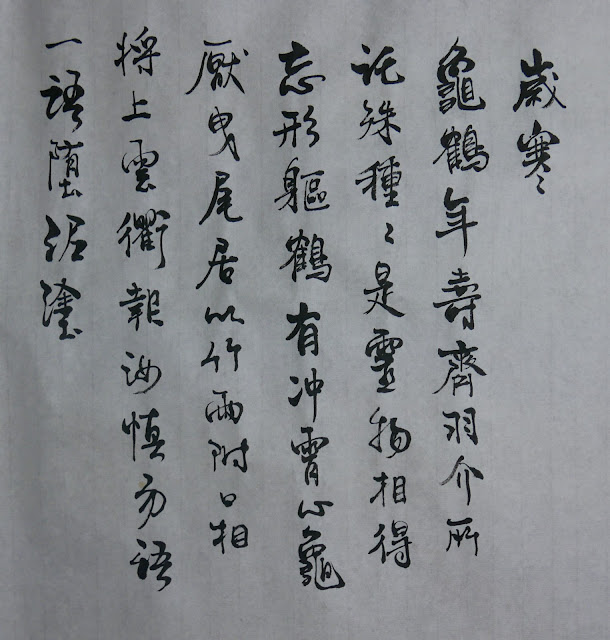 歲寒
龜鶴年壽齊羽介所
託殊種〻是靈物相得
忘形軀鶴有冲霄心龜
厭曳尾居以竹兩附口相
將上雲衢報汝慎勿語
一語墮泥塗